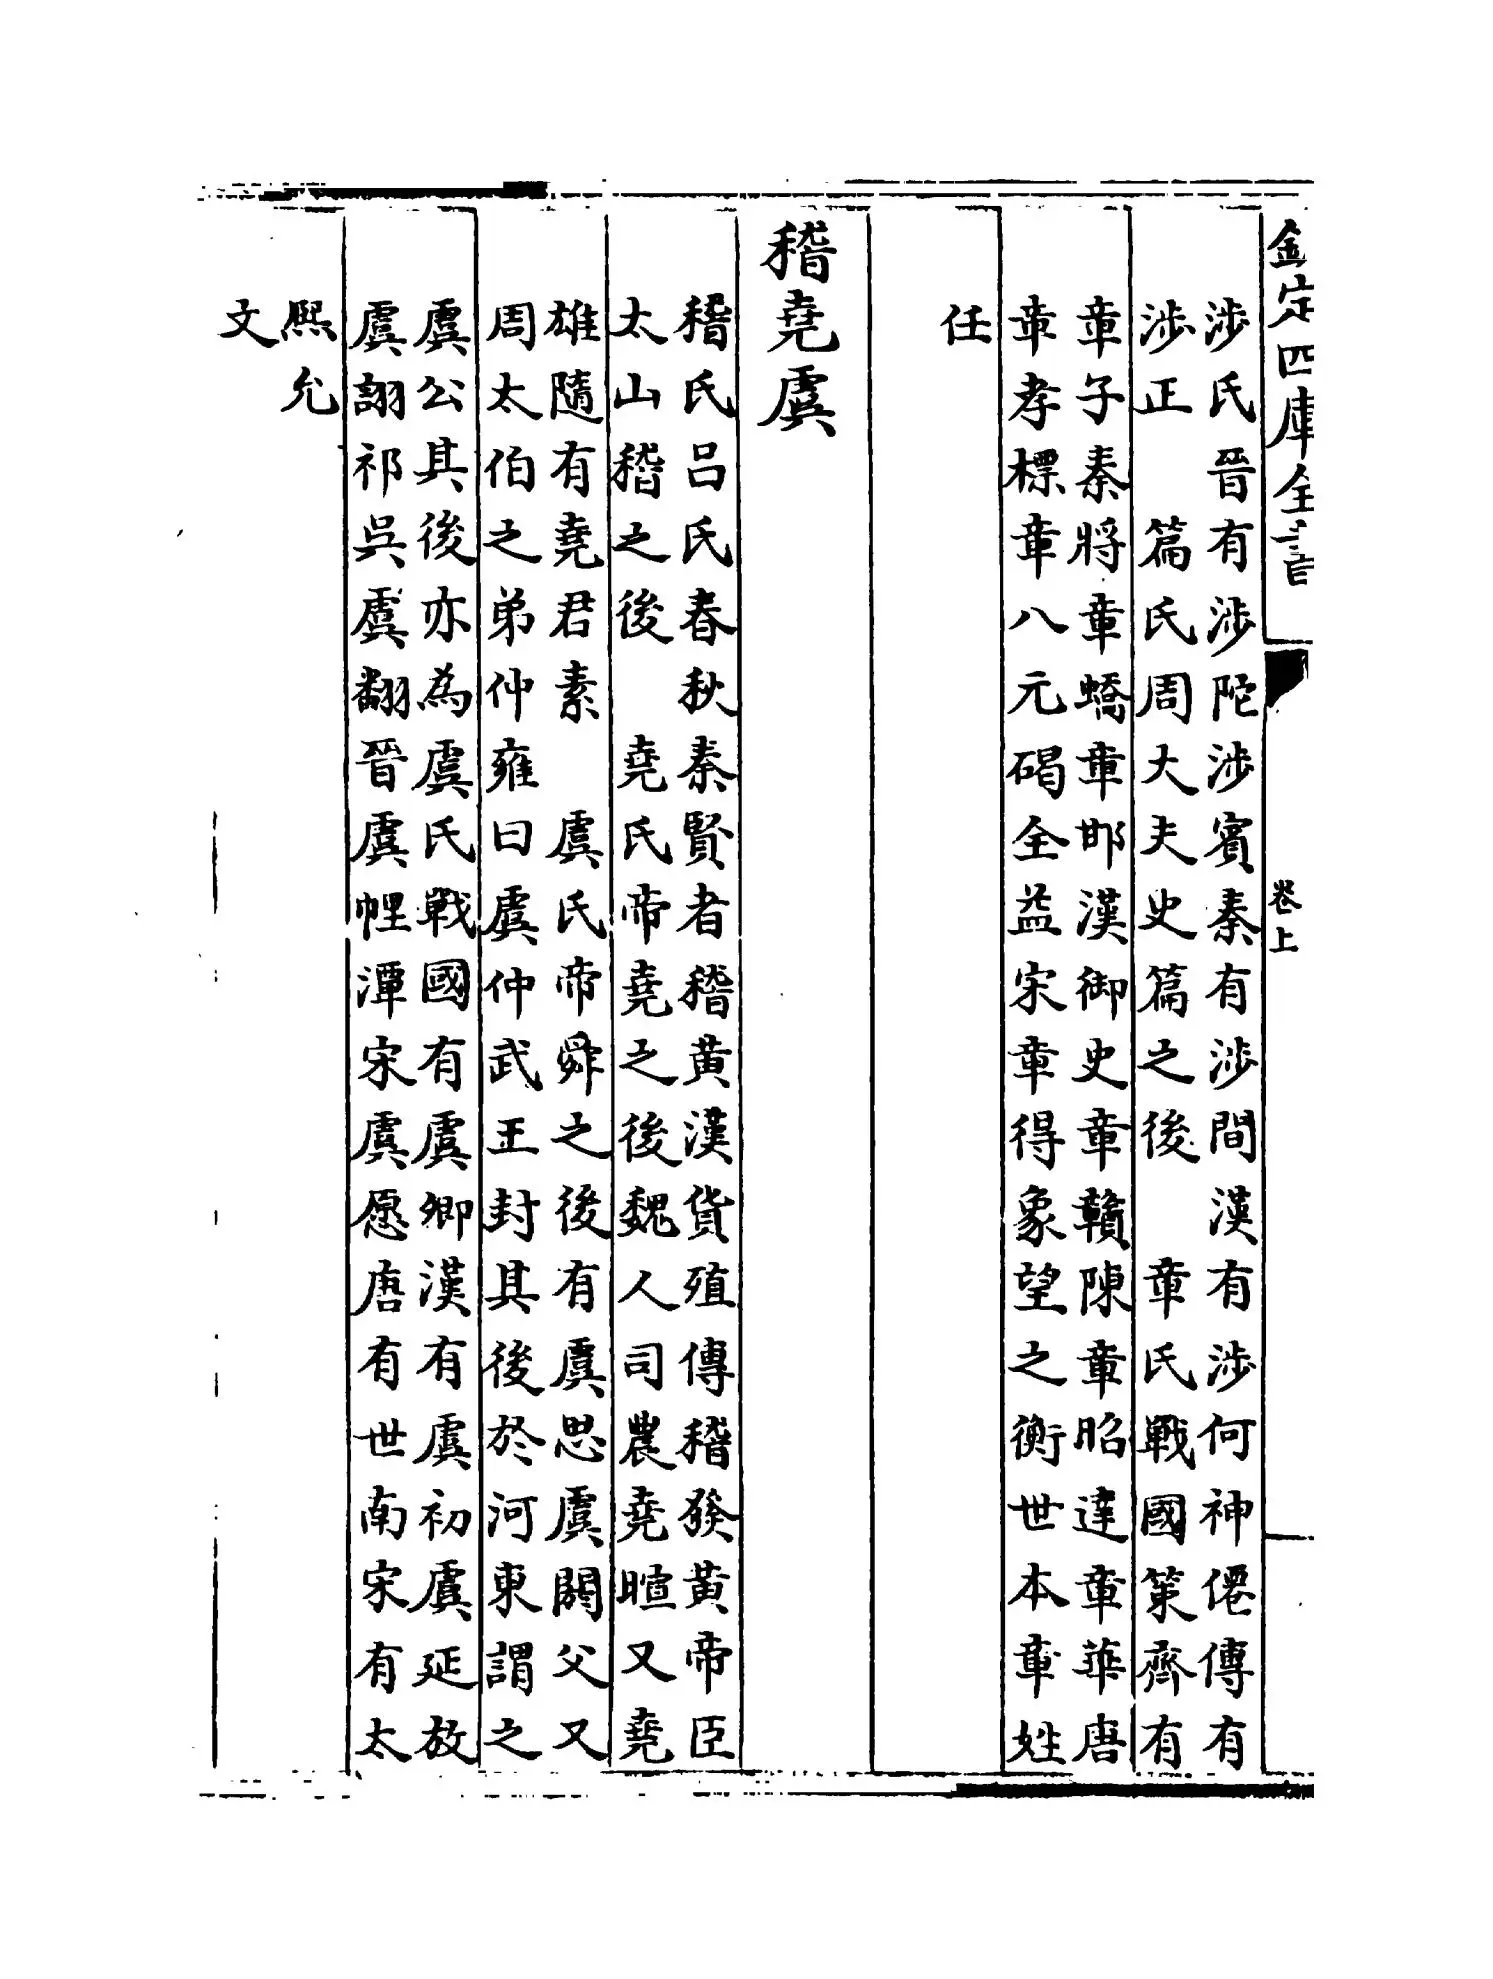 欽定四庫全書
卷上
涉氏晉有涉陀涉賓秦有涉間漢有涉何神僊傳有
涉正 篇氏周大夫史篇之後 章氏戰國策齊有
章子秦將章蟜章邯漢御史章贛陳章昭達章華唐
章孝標章八元碣全益宋章得象望之衡世本章姓
任
稽堯虞
稽氏呂氏春秋秦賢者稽黄漢貨殖傳稽發黄帝臣
太山稽之後 堯氏帝堯之後魏人司農堯暄又堯
雄隨有堯君素 虞氏帝舜之後有虞思虞閼父又
周太伯之弟仲雍曰虞仲武王封其後於河東謂之
虞公其後亦為虞氏戰國有虞卿漢有虞初虞延放
虞詡祁吳虞翻晉虞悝潭宋虞愿唐有世南宋有太
熙允
文